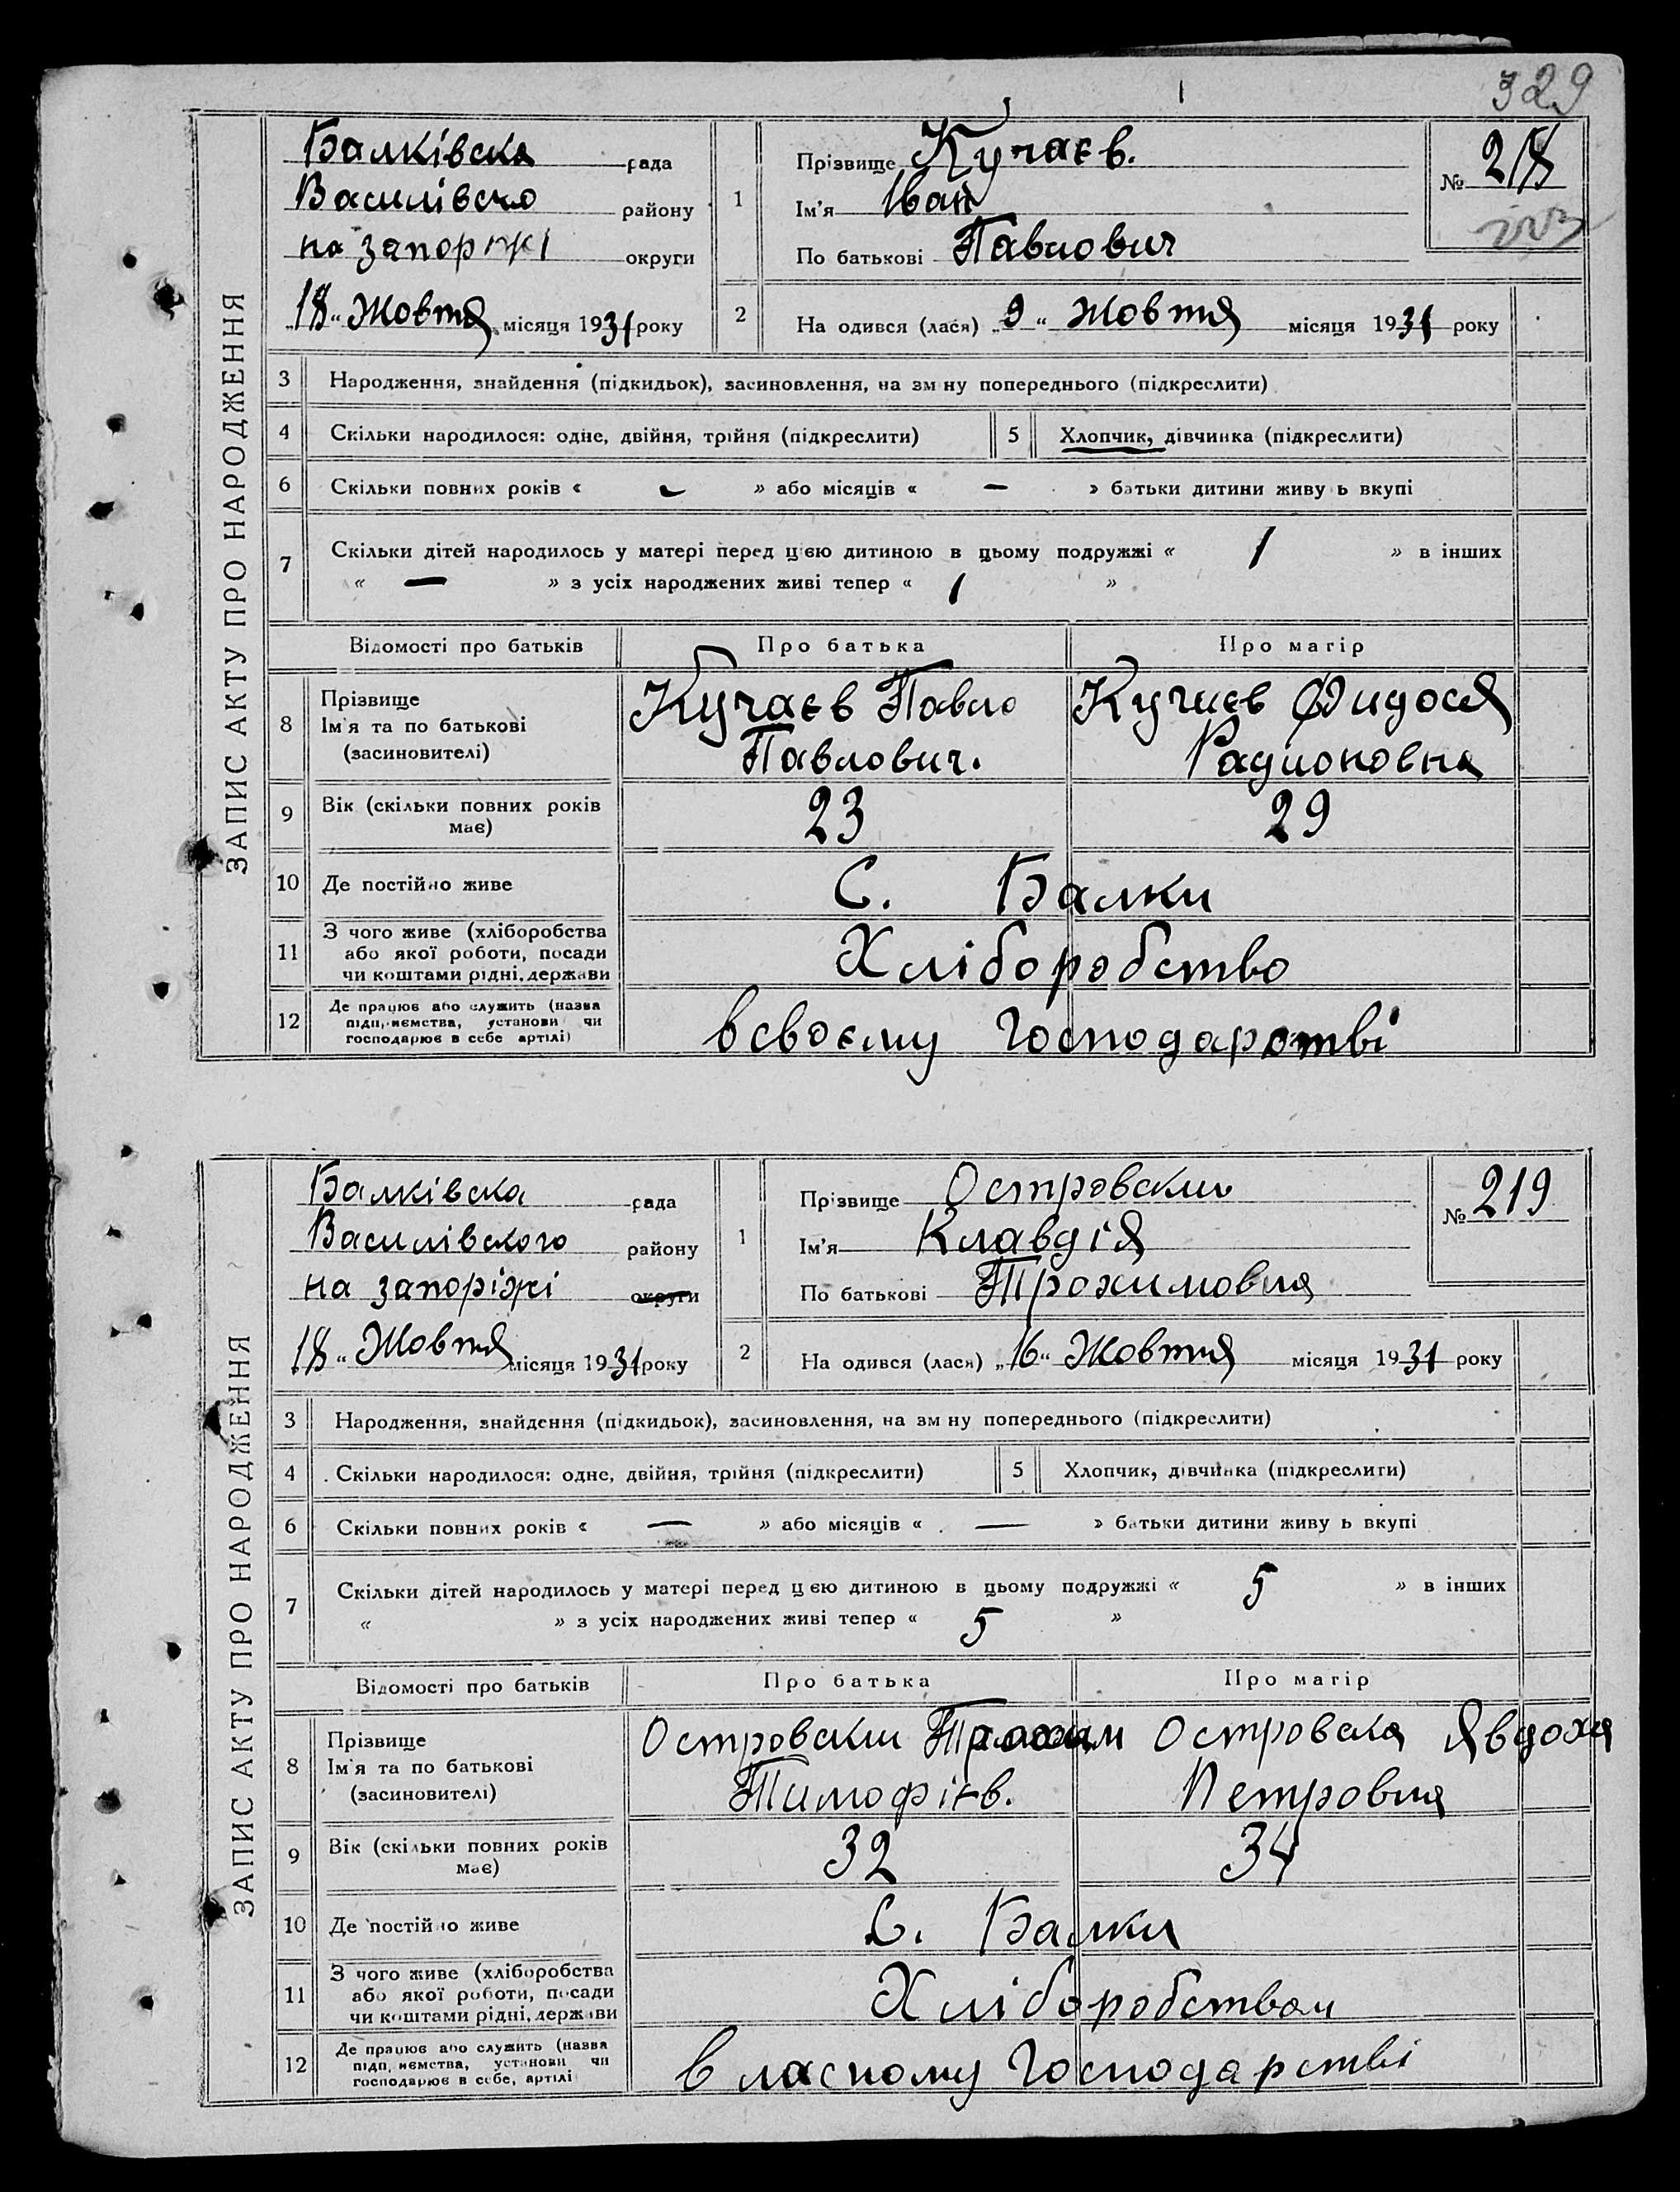 329
ЗАПИС АКТУ ПРО НАРОДЖЕННЯ
Балківска рада
Василівско району
на запоріжі округи
„18“ Жовтя місяця 1931 року
1 Прізвище Кучаєв.
Ім'я Іван
По батькові Павлович
№ 218
2 На одився (лася) „9“ Жовтя місяця 1931 року
3 Народження, знайдення (підкидьок), засиновлення, на зм ну попереднього (підкреслити)
4 Скільки народилося: одне, двійня, трійня (підкреслити) 5 Хлопчик, дівчинка (підкреслити)
6 Скільки повних років « — » або місяців « — » батьки дитини живу ь вкупі
7 Скільки дітей народилось у матері перед цією дитиною в цьому подружжі « 1 » в інших
« — » з усіх народжених живі тепер « 1 »
Відомості про батьків Про батька Про матір
8 Прізвище
Ім'я та по батькові
(засиновителі)
Кучаєв Павло
Павлович.
Кучаєв Фидося
Радионовна
9 Вік (скільки повних років
має)
23 29
10 Де постійно живе С. Балки
11 З чого живе (хліборобства
або якої роботи, посади
чи коштами рідні, держави
Хліборобство
12 Де працює або служить (назва
підприємства, установи чи
господарює в себе артілі)
в своєму господарстві
ЗАПИС АКТУ ПРО НАРОДЖЕННЯ
Балківска рада
Василівского району
на запоріжі округи
18“ Жовтя місяця 1931 року
1 Прізвище Островски
Ім'я Клавдія
По батькові Трохимовна
№ 219
2 На одився (лася) „16“ Жовтя місяця 1931 року
3 Народження, знайдення (підкидьок), засиновлення, на зм ну попереднього (підкреслити)
4 Скільки народилося: одне, двійня, трійня (підкреслити) 5 Хлопчик, дівчинка (підкреслити)
6 Скільки повних років « — » або місяців « — » батьки дитини живу ь вкупі
7 Скільки дітей народилось у матері перед ц єю дитиною в цьому подружжі « 5 » в інших
« » з усіх народжених живі тепер « 5 »
Відомості про батьків Про батька Про матір
8 Прізвище
Ім'я та по батькові
(засиновителі)
Островски Трохим
Тимофієв.
Островска Явдоха
Петровна
9 Вік (скільки повних років
має)
32 34
10 Де постійно живе С. Балки
11 З чого живе (хліборобства
або якої роботи, посади
чи коштами рідні, держави
Хліборобством
12 Де працює або служить (назва
підприємства, установи чи
господарює в себе, артілі
в ласному господарстві